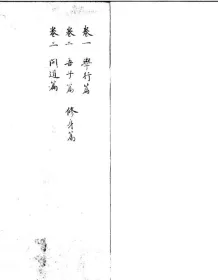 卷一 學行篇
卷二 吾子篇 修身篇
卷三 问道篇